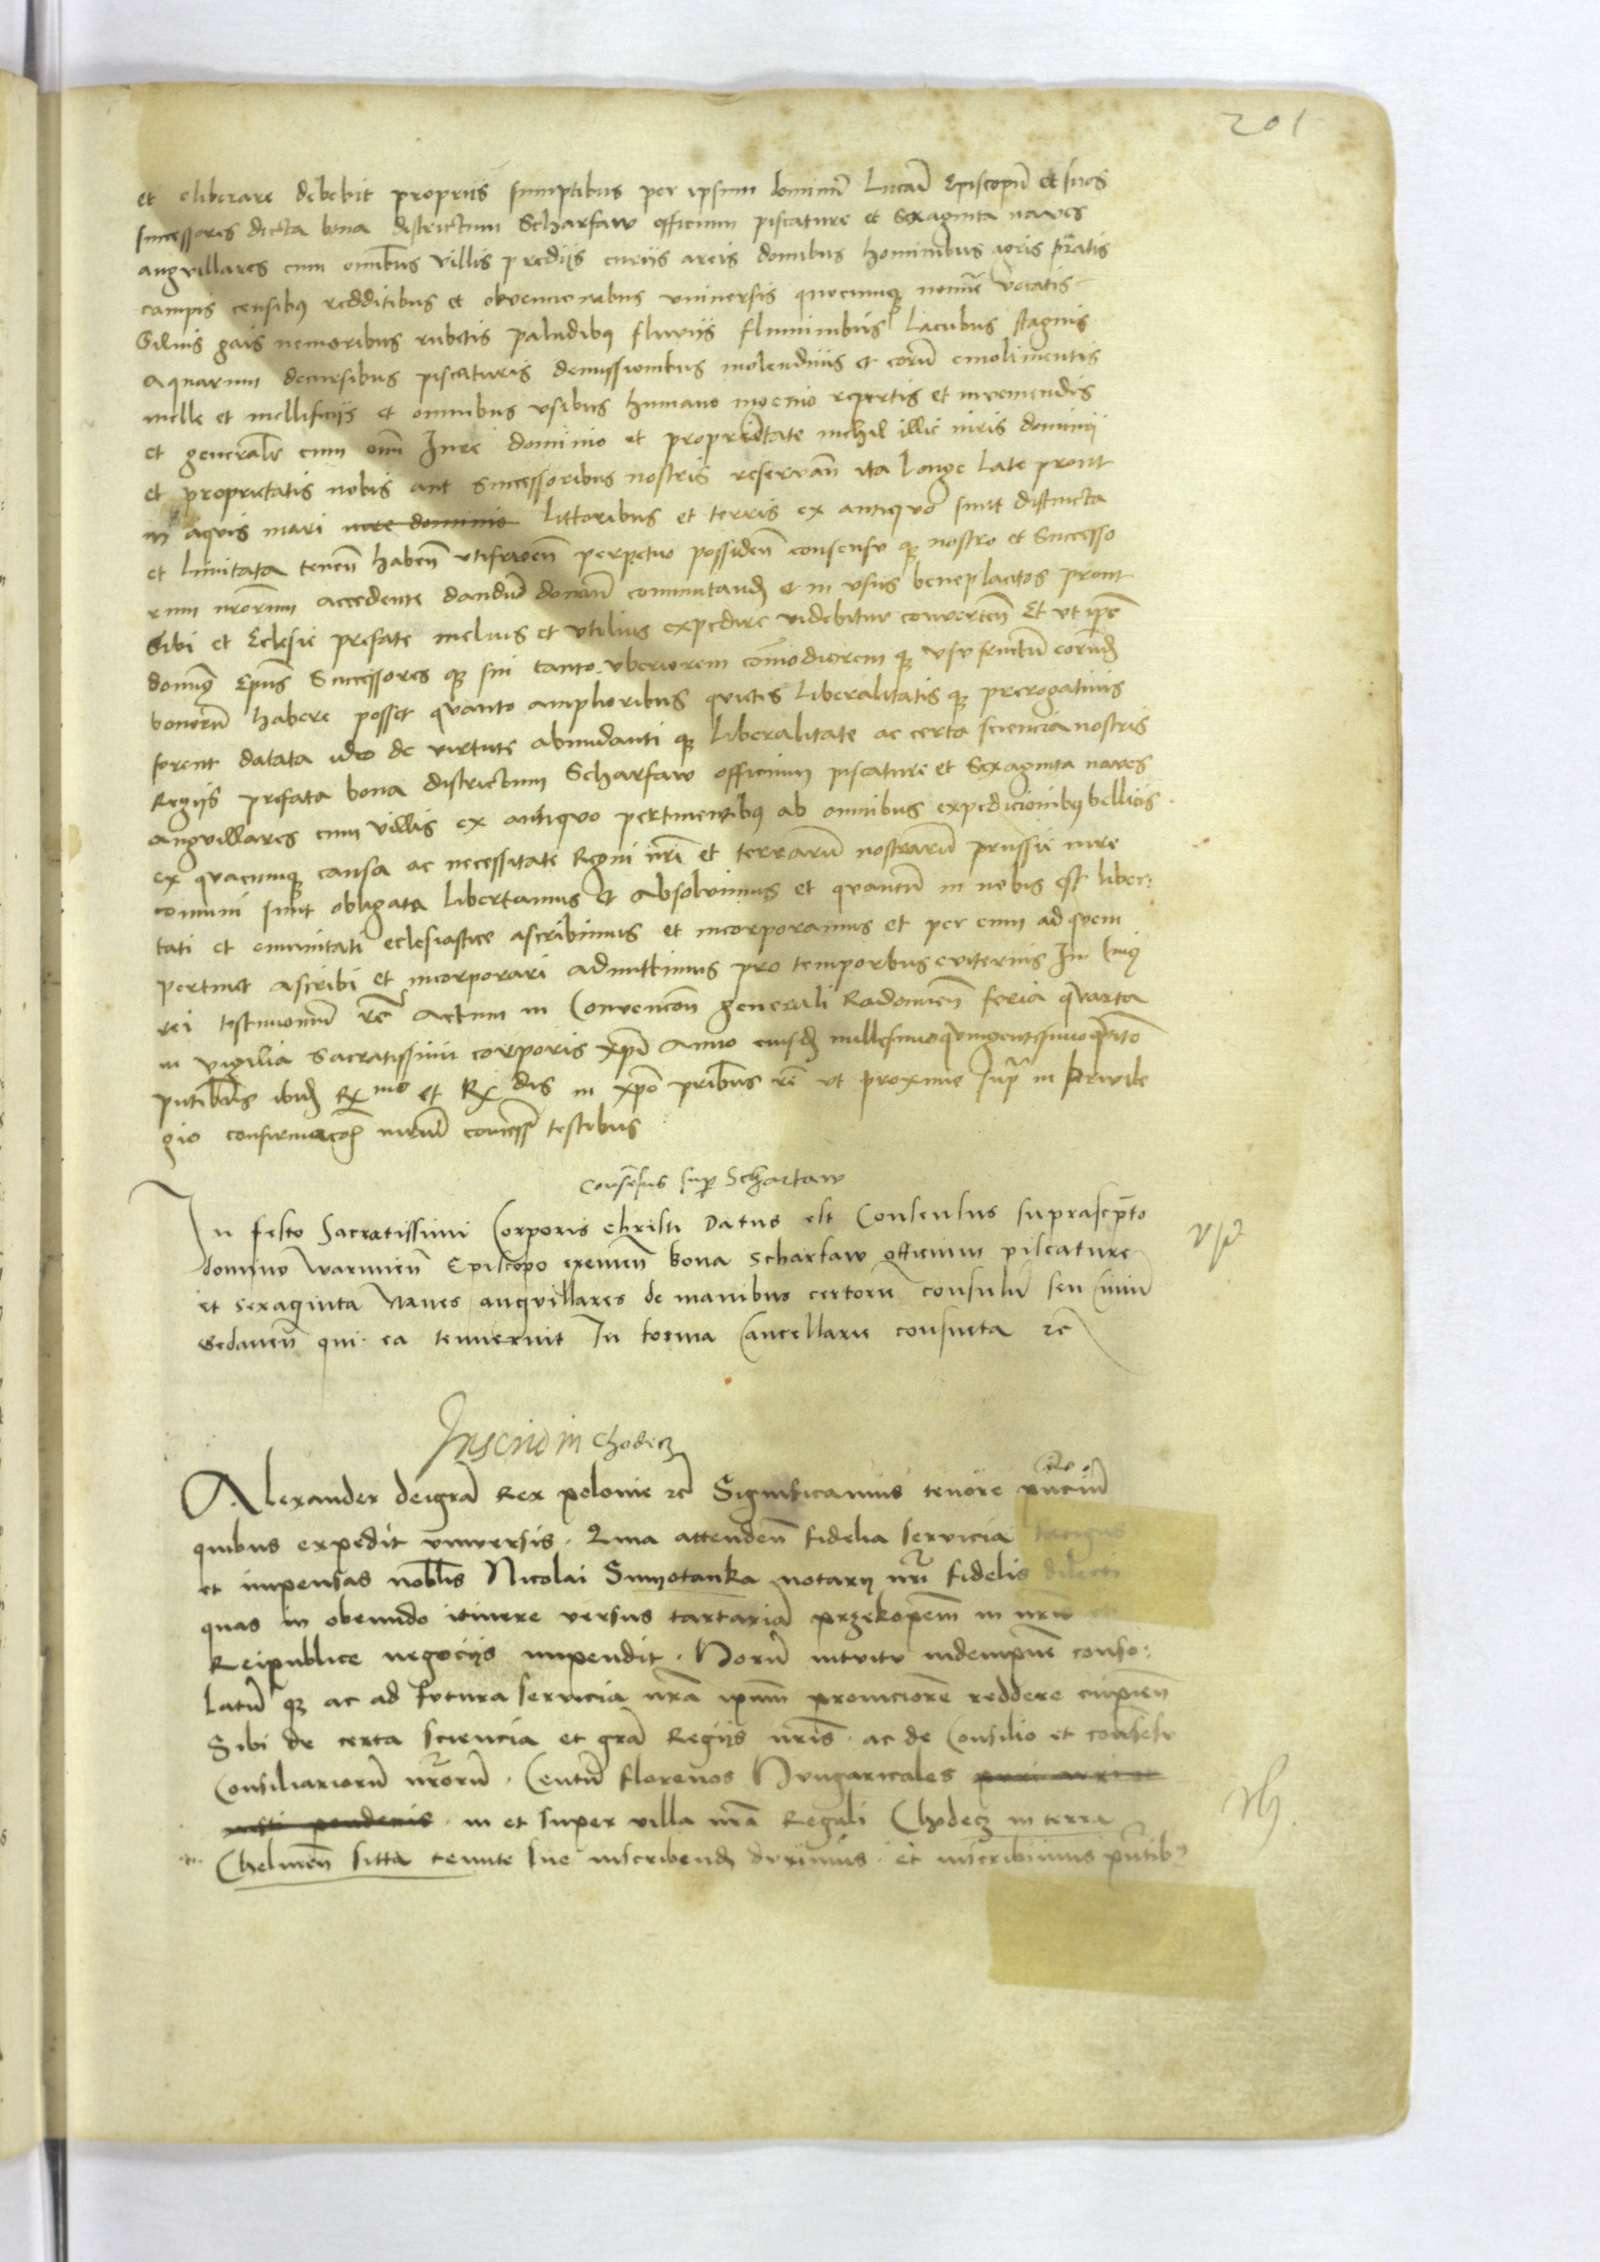 201
et eliberare debebit propriis sumptibus per ipsum dominū Lucaī Episcopū et suos
successores dicta bona districtum Scharfaw officium piscature et Sexaginta naves
angvillares cum omībus villis prediis curiis areis domibus hominibus agris pratis
campis censibꝯ redditibus et obvencionibus vniversis quocumqꝫ nomīe vocatis
Siluis gais nemoribus rubetis paludibꝯ fluviis fluminibus Lacubus stagnis
aquarum decursibus piscaturis demissionibus molendinis et eorū emolimentis
melle et mellificiis et omnibus vsibus humano ingenio repertis et inveniendis
et generalr̄ cum omī Iure dominio et proprietate nichil illic iuris dominii
et proprietatis nobis aut Successoribus nostris reservan̄ ita Longe Late prout
in aqvis mari iure dominio Littoribus et terris ex antiqvo sunt distincta
et Limitata tenen̄ haben̄ vtifruen̄ perpetuo possiden̄ consensu qꝫ nostro et Successo
rum nrōrum accedente dandum donan̄ commutandꝫ et in vsus beneplacitos prout
Sibi et Eclesie prefate melius et vtilius expedire videbitur converten̄ Et vt ip̄e
dominꝯ Ep̄us Successores qꝫ sui tanto vberiorem comodiorem qꝫ vsufructū eorundꝫ
bonorū habere posset qvanto amplioribus qvietis Liberalitatis qꝫ prerogativis
forent dotata ideo de virtute abundanti qꝫ Liberalitate ac certa sciencia nostris
Regiis prefata bona districtum Scharfaw officium piscature et Sexaginta naves
angvillares cum villis ex antiqvo pertinentibꝯ ab omnibus expedicionibꝯ bellicis
ex qvacumqꝫ causa ac necessitate Regni nr̄i et terrarū nostrarū prussie iure
comuni sint obligata Libertamus et absolvimus et qvantū in nobis est liber:
tati et emunitati eclesiastice ascribimus et incorporamus et per eum ad quem
pertinet ascribi et incorporari admittimus pro temporibus eviternis In cuiꝯ
rei testimoniū rc̄ Actum in Convencōn generali Radomien̄ feria qvarta
in vigilia Sacratissimi corporis xp̄i Anno eiusdꝫ millesimoqvingentesimoqvarto
pn̄tibus ibidꝫ Rꝫmo et Rꝫdis in xp̄o pr̄ibus rc̄ vt proxime supra in privile
gio confirmacōnꝫ testibus
Consensus sup̄ Scharfaw
In festo Sacratissimi Corporis christi Datus est Consensus suprascp̄to
domino Warmien̄ Episcopo eximen̄ bona Scharfaw officium piscature
et sexaginta Naves angvillares de manibus certorū consulū seu civiū
Gedanen̄ qui ea tenuerunt In forma Cancellarie consueta rc̄
Inscrio in Chodecz
Alexander deigrā Rex polonie rc̄ Significamus tenore pn̄ciū
quibus expedit vniversis. Quia attenden̄ fidelia servicia
et impensas nob̄lis Nicolai Smyotanka notarii nr̄i fidelis dilecti
quas in obeundo itinere versus tartariā przekopen̄ in nr̄is et
Reipublice negociis impendit. Horū intuitu indempnē conso:
latū qꝫ ac ad futura servicia nrā ip̄um promciorē reddere cupien̄
Sibi de certa sciencia et grā Regiis nr̄is ac de Consilio et consēsu
Consiliariorū nrōrū. Centū florenos Hvngaricales puri auri et
iusti ponderis. in et super villa nrā Regali Chodecz in terra
Chelmen̄ sitta tenute sue inscribendꝫ duximus. et inscribimus pn̄tibꝯ